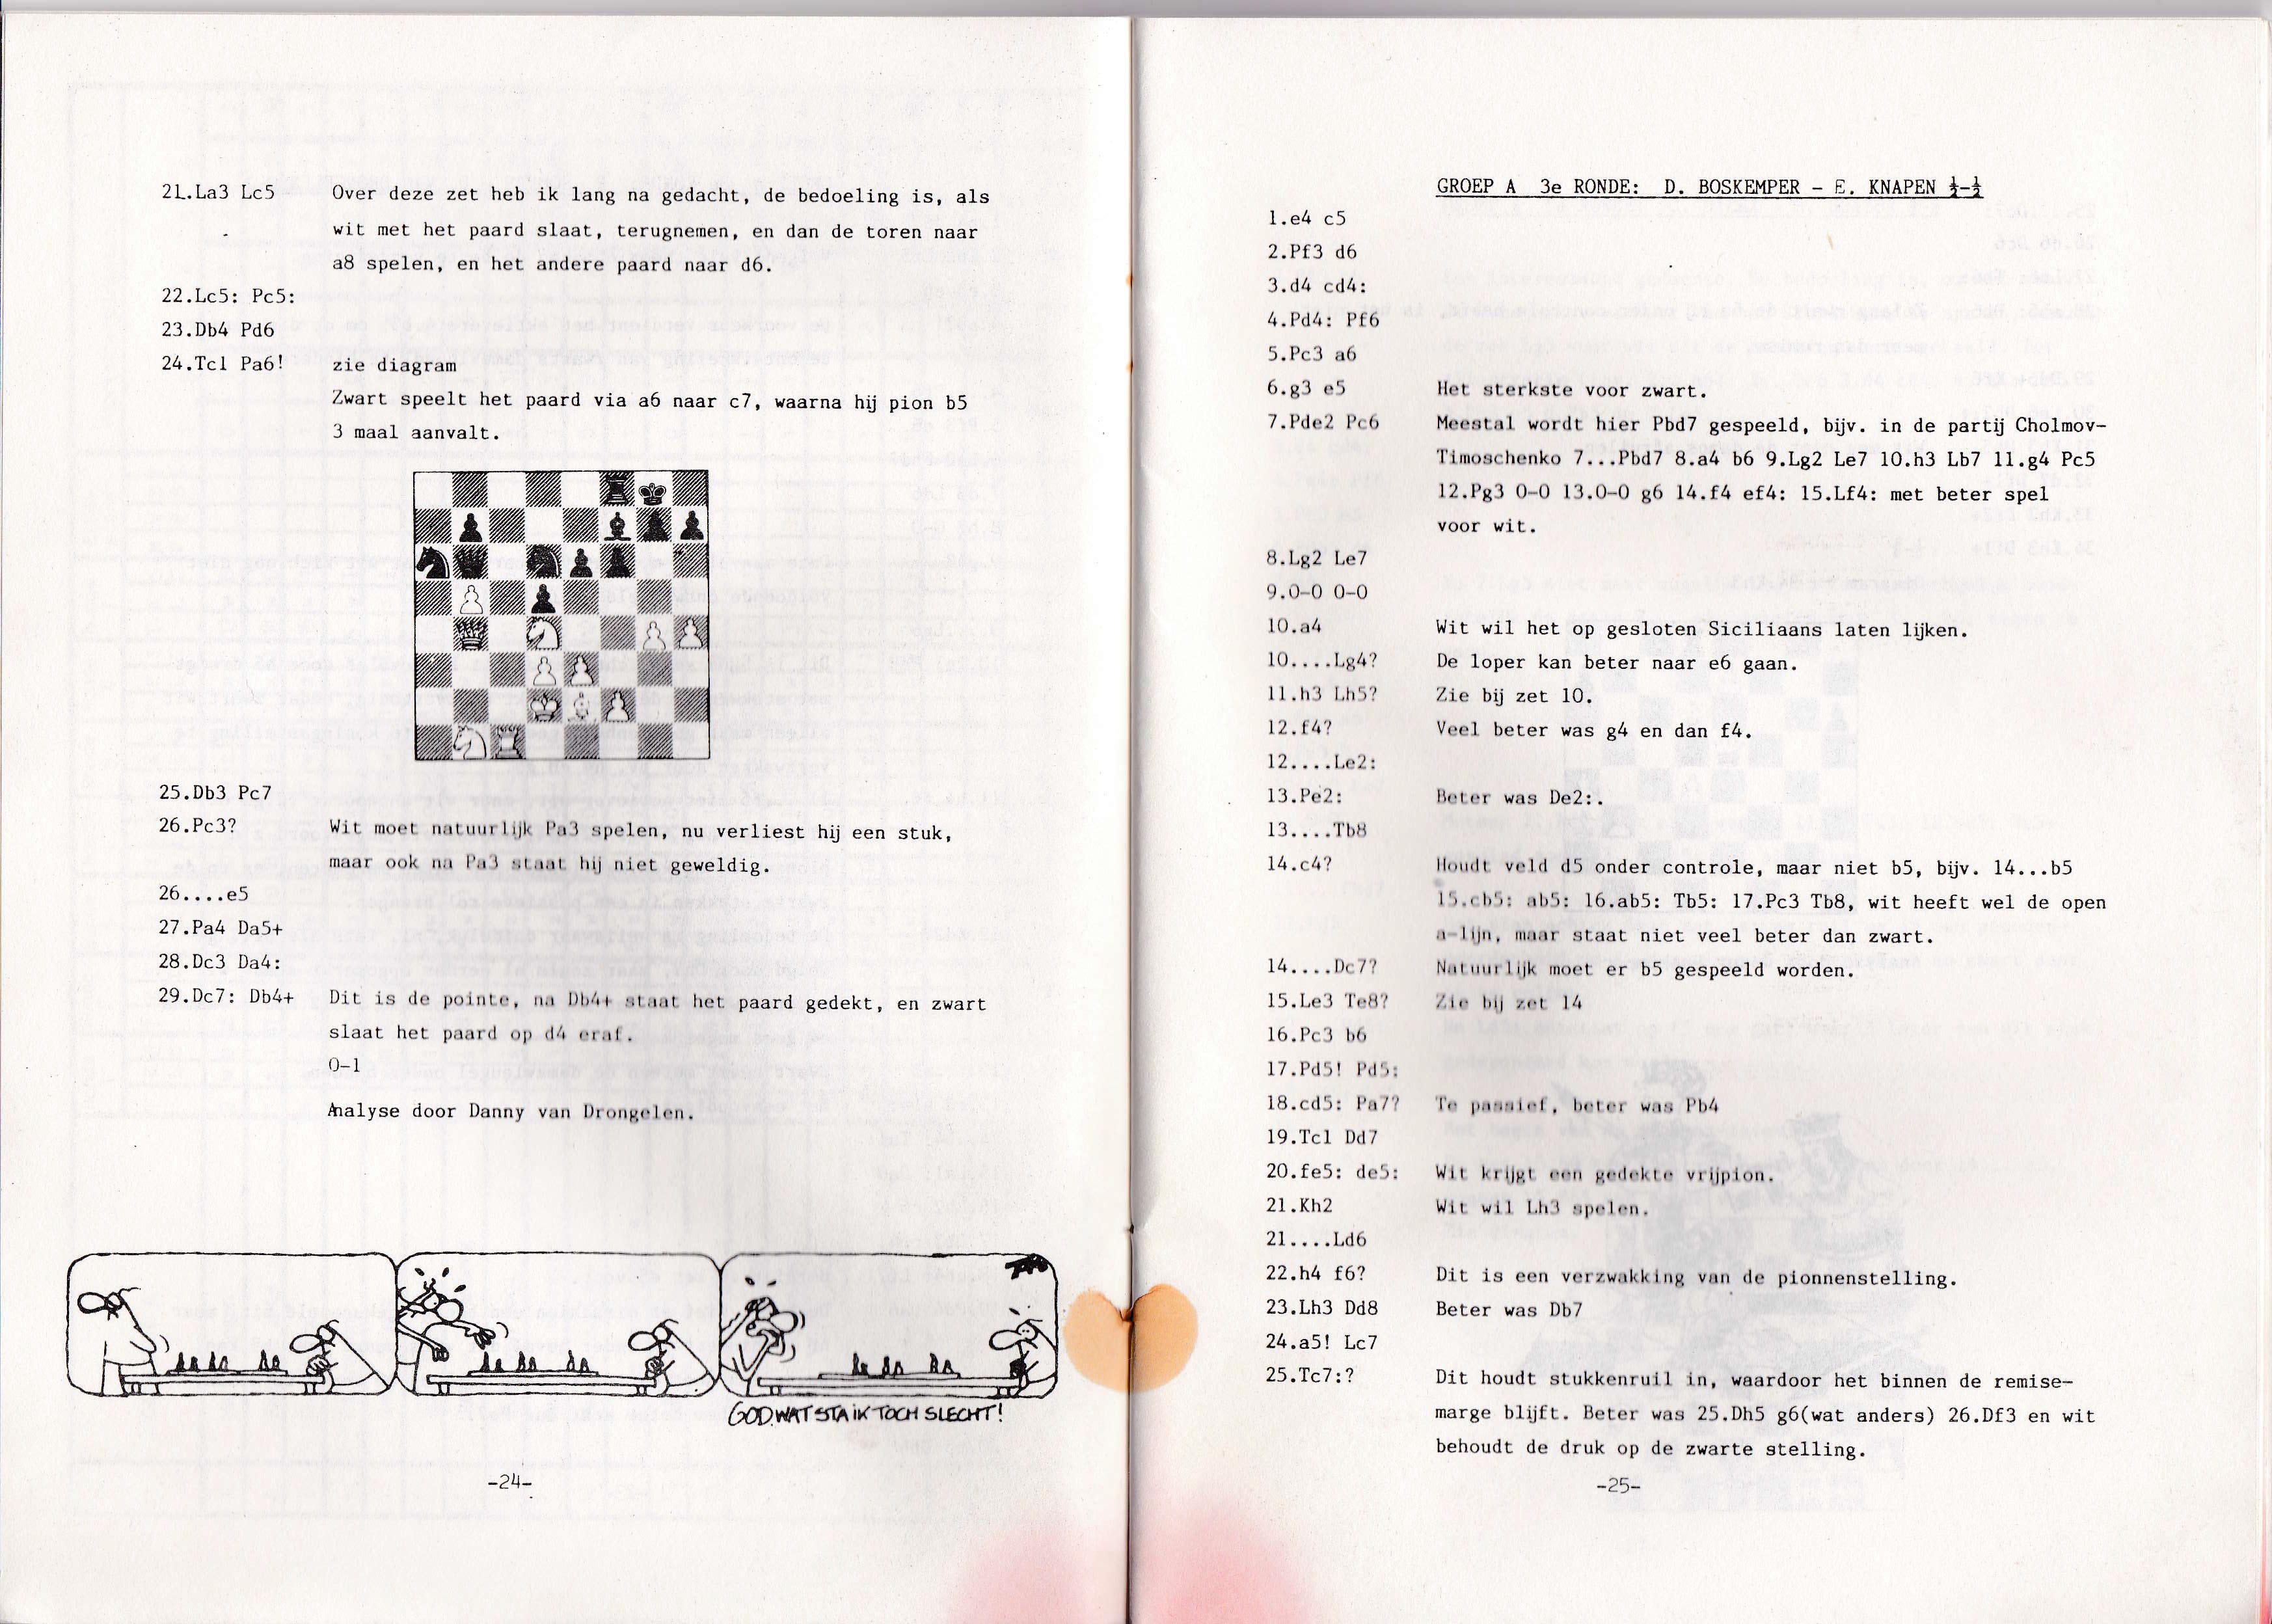 21.La3 Lc5 Over deze zet heb ik lang na gedacht, de bedoeling is, als
wit met het paard slaat, terugnemen, en dan de toren naar
a8 spelen, en het andere paard naar d6.
22.Lc5: Pc5:
23.Db4 Pd6
24.Tc1 Pa6! zie diagram
Zwart speelt het paard via a6 naar c7, waarna hij pion b5
3 maal aanvalt.
25.Db3 Pc7
26.Pc3? Wit moet natuurlijk Pa3 spelen, nu verliest hij een stuk,
maar ook na Pa3 staat hij niet geweldig.
26....e5
27.Pa4 Da5+
28.Dc3 Da4:
29.Dc7: Db4+ Dit is de pointe, na Db4+ staat het paard gedekt, en zwart
slaat het paard op d4 eraf.
0-1
Analyse door Danny van Drongelen.
GOD, WAT STA IK TOCH SLECHT!
-24-
GROEP A 3e RONDE: D. BOSKEMPER - E. KNAPEN ½-½
1.e4 c5
2.Pf3 d6
3.d4 cd4:
4.Pd4: Pf6
5.Pc3 a6
6.g3 e5 Het sterkste voor zwart.
7.Pde2 Pc6 Meestal wordt hier Pbd7 gespeeld, bijv. in de partij Cholmov-
Timoschenko 7...Pbd7 8.a4 b6 9.Lg2 Le7 10.h3 Lb7 11.g4 Pc5
12.Pg3 0-0 13.0-0 g6 14.f4 ef4: 15.Lf4: met beter spel
voor wit.
8.Lg2 Le7
9.0-0 0-0
10.a4 Wit wil het op gesloten Siciliaans laten lijken.
10....Lg4? De loper kan beter naar e6 gaan.
11.h3 Lh5? Zie bij zet 10.
12.f4? Veel beter was g4 en dan f4.
12....Le2:
13.Pe2: Beter was De2:.
13....Tb8
14.c4? Houdt veld d5 onder controle, maar niet b5, bijv. 14...b5
15.cb5: ab5: 16.ab5: Tb5: 17.Pc3 Tb8, wit heeft wel de open
a-lijn, maar staat niet veel beter dan zwart.
14....Dc7? Natuurlijk moet er b5 gespeeld worden.
15.Le3 Te8? Zie bij zet 14
16.Pc3 b6
17.Pd5! Pd5:
18.cd5: Pa7? Te passief, beter was Pb4
19.Tc1 Dd7
20.fe5: de5: Wit krijgt een gedekte vrijpion.
21.Kh2 Wit wil Lh3 spelen.
21....Ld6
22.h4 f6? Dit is een verzwakking van de pionnenstelling.
23.Lh3 Dd8 Beter was Db7
24.a5! Lc7
25.Tc7:? Dit houdt stukkenruil in, waardoor het binnen de remise-
marge blijft. Beter was 25.Dh5 g6(wat anders) 26.Df3 en wit
behoudt de druk op de zwarte stelling.
-25-